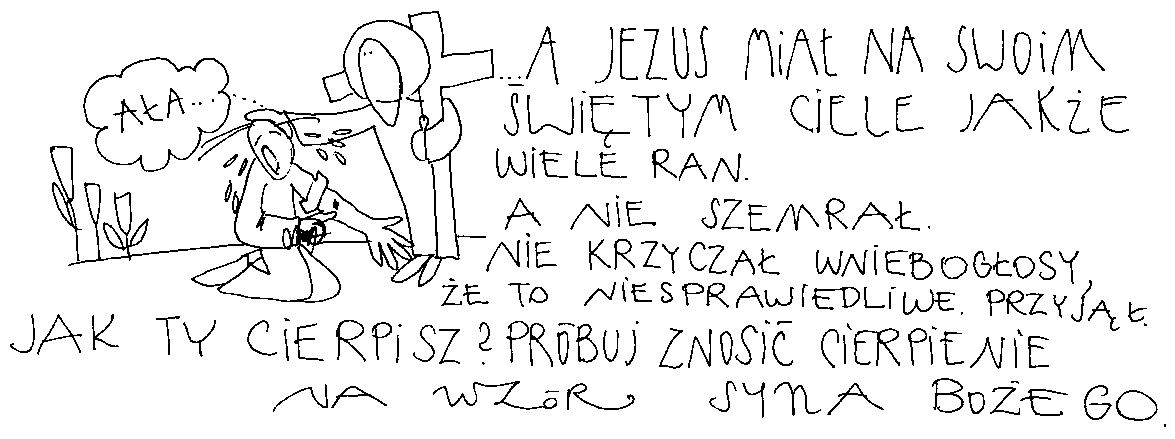 AŁA...
...A JEZUS MIAŁ NA SWOIM
ŚWIĘTYM CIELE JAKŻE
WIELE RAN.
A NIE SZEMRAŁ.
NIE KRZYCZAŁ WNIEBOGŁOSY,
ŻE TO NIESPRAWIEDLIWE. PRZYJĄŁ.
JAK TY CIERPISZ? PRÓBUJ ZNOSIĆ CIERPIENIE
NA WZÓR SYNA BOŻEGO.